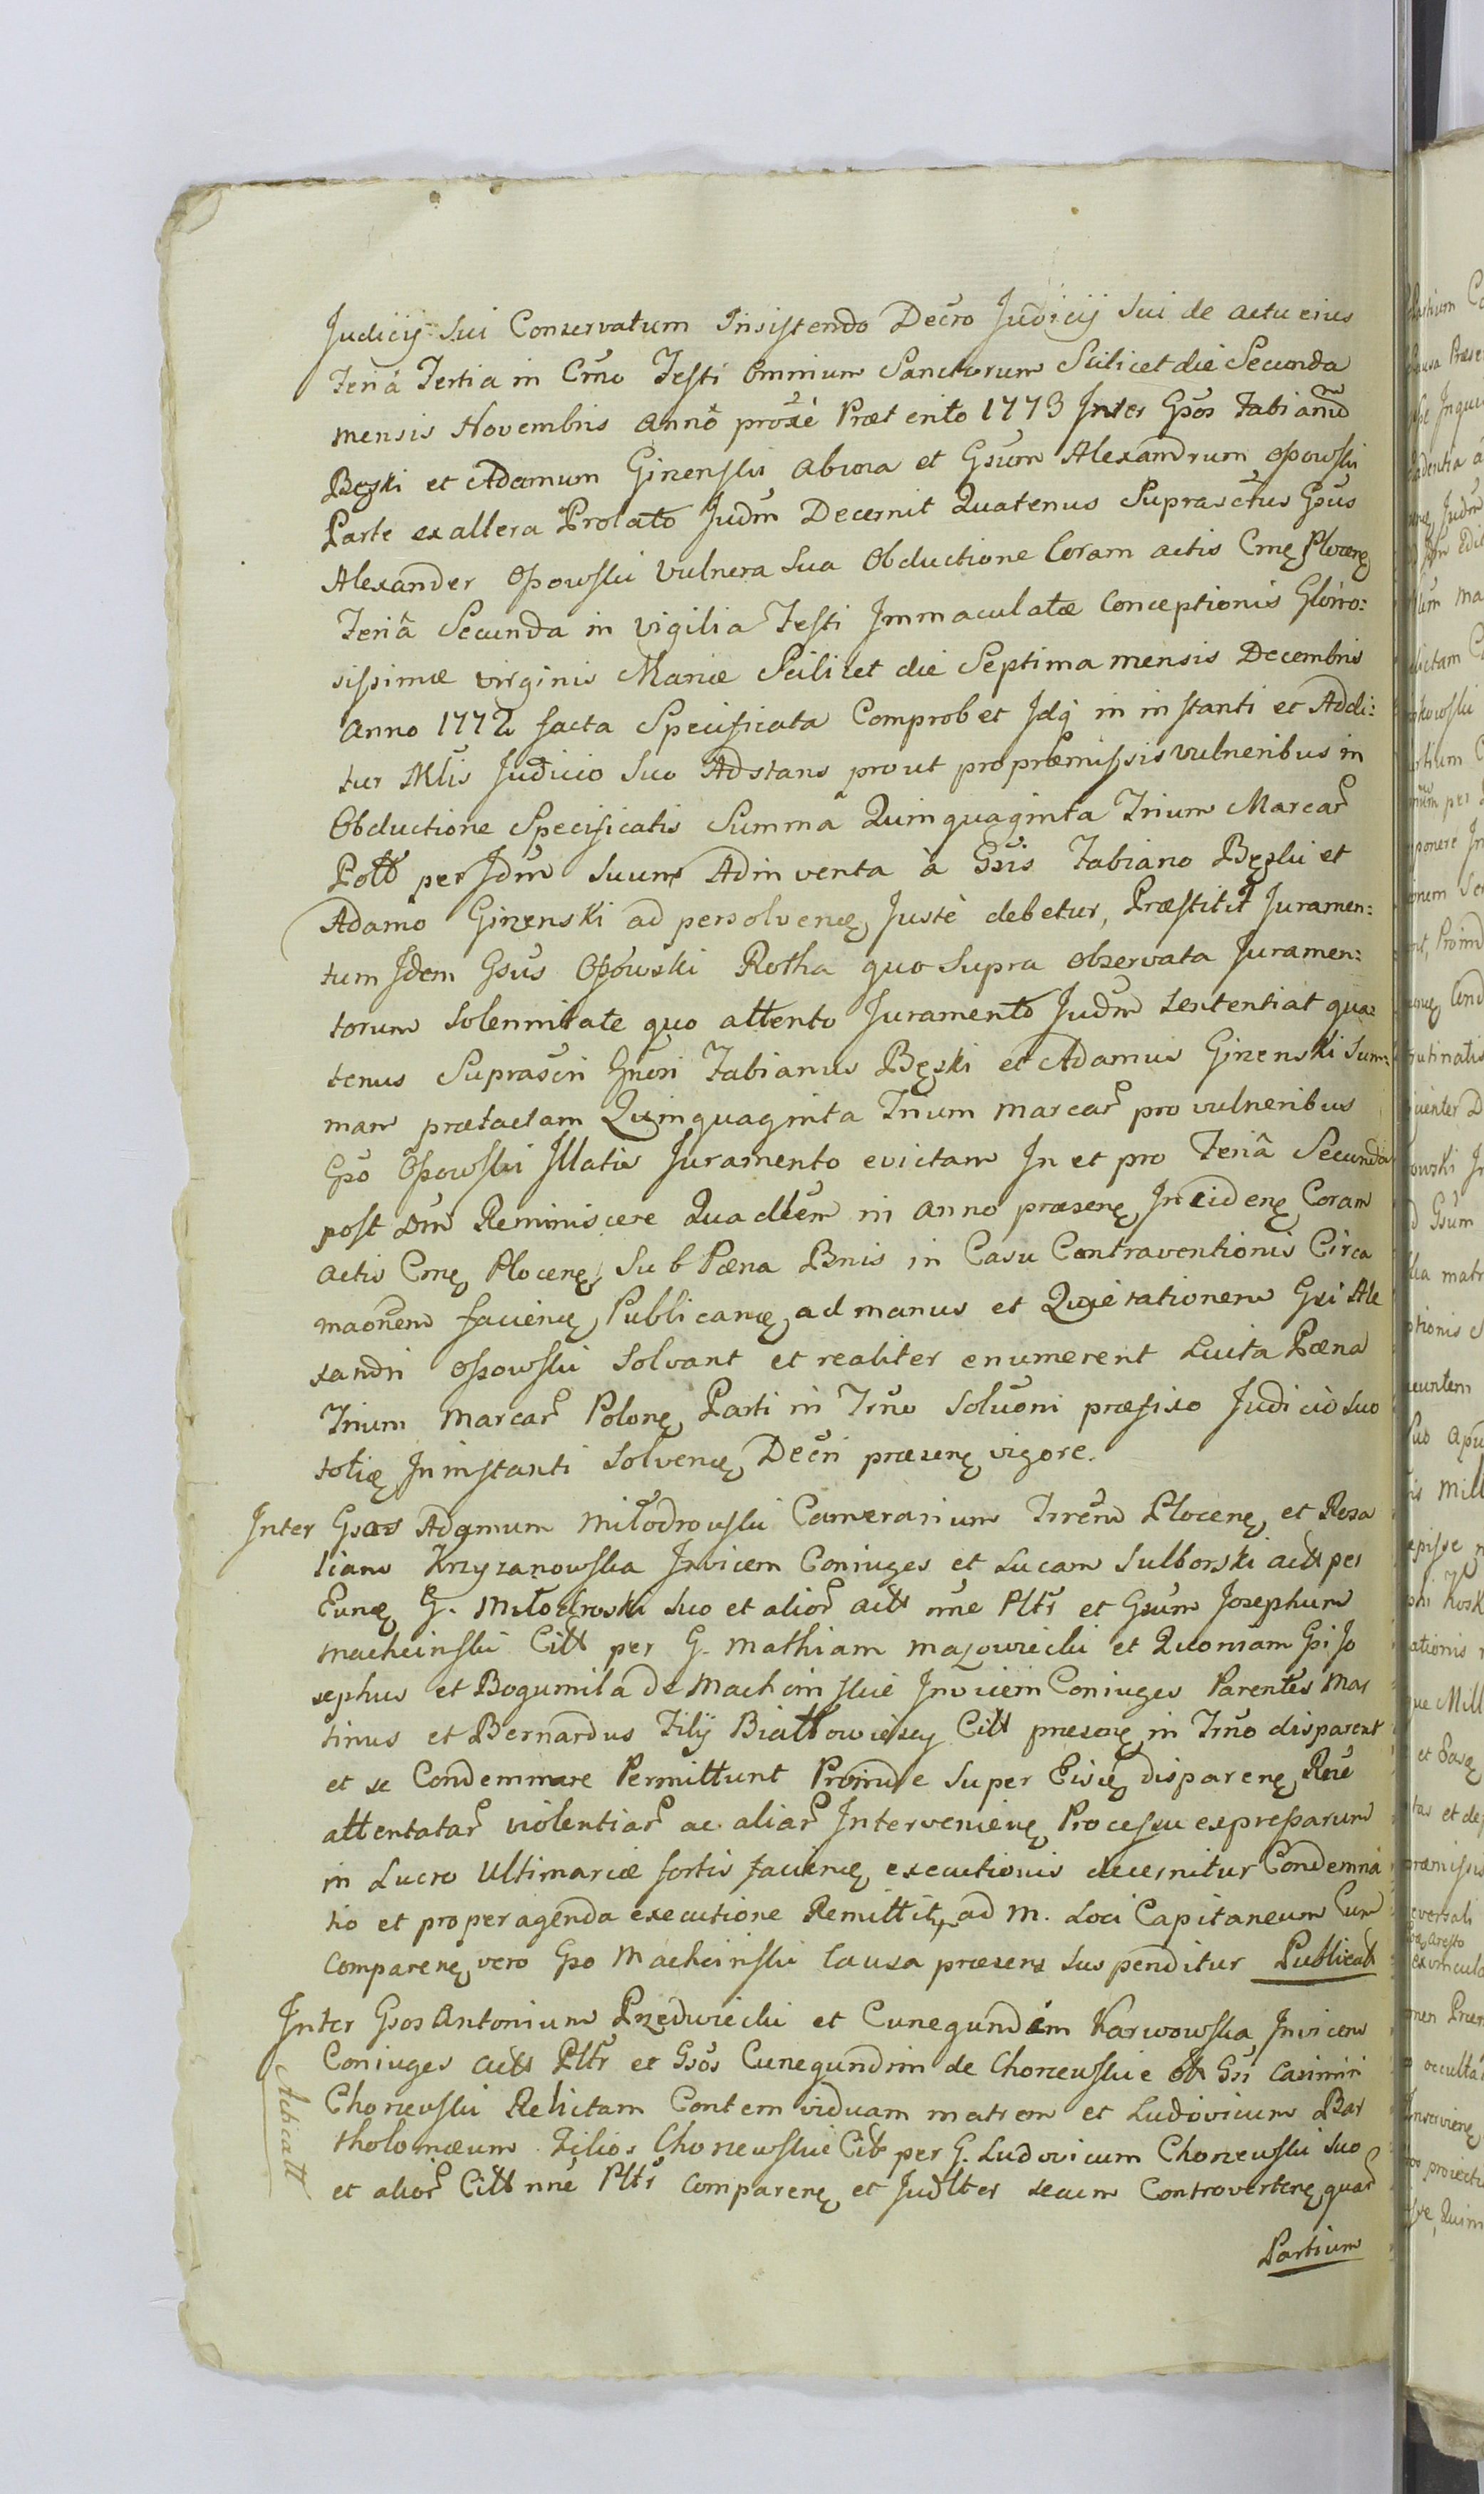 Judicij Sui Conservatum Insistendo Decro Judicij Sui de actu eius
Feriâ Tertia in Cmo Festi Omnium Sanctorum Scilicet die Secunda
mensis Novembris Anno proxè Præterito 1773 Inter Gsos Fabianum
Bęski et Adamum Ginenski ab una et Gsum Alexandrum Ossowski
Parte ex altera Prolato Judm Decernit Quatenus Suprasctus Gsus
Alexander Ossowski Vulnera Sua Obductione Coram actis Cmę Plocenę
Feriâ Secunda in Vigilia Festi Immaculatæ Conceptionis Glorio:
sissimæ Virginis Mariæ Scilicet die Septima mensis Decembris
Anno 1772 facta Specificata Comprobet Idq in instanti et Addi:
tur Mlis Judicio Suo Adstans prout pro præmissis vulneribus in
Obductione Specificatis Summâ Quinquaginta Trium Marcar
Poll per Jdm Suum Adinventa à Gsis Fabiano Bęski et
Adamo Ginenski ad persolvenę Justè debetur, Præstitit Juramen:
tum Idem Gsus Ossowski Rotha quo Supra Observata Juramen:
torum Solennitate quo attento Juramento Judm Sententiat qua:
tenus Suprascri Gneri Fabianus Bęski et Adamus Ginenski Sum:
mam prætactam Quinquaginta Trium marcar pro vulneribus
Gso Ossowski Illatis Juramento evictam In et pro Feriâ Secunda
post Dm Reminiscere Quadlem in anno præsenę Incidenę Coram
actis Cmę Plocenę Sub Pæna Bnis in Casu Contraventionis Circa
maonem facienę Publicanę ad manus et Quietationem Gsi Ale
xandri Ossowski Solvant et realiter enumerent Luita Pæna
Trium Marcar Polonę Parti in Trno Soluoni præfixo Judicio Suo
totię In instanti Solvenę Decri præsenę vigore.
Inter Gsos Adamum Miłodrowski Camerarium Trrem Plocenę et Rosa
liam Krzyzanowska Invicem Coniuges et Lucam Sulborski actt per
Eunę G. Miłodrowski Suo et alior actt nne Pltr et Gsum Josephum
Macheinski Citt per G. Mathiam Mazowiecki et Quoniam Gsi Jo
sephus et Bogumila de Macheinskie Invicem Coniuges Parentes Mar
tinus et Bernardus Filij Białłowieyscy Citt præsenę in Trno disparent
et se Condemnare Permittunt Proinde Super Eisię disparenę Rne
attentatar violentiar ac aliar Intervenienę Processu expressarum
in Lucro Ultimariæ fortis facienę executionis decernitur Condemna
tio et pro peragenda executione Remittitq ad M. Loci Capitaneum Cum
Comparenę vero Gso Macheinski Causa præsens Suspenditur Publicatt
Inter Gsos Antonium Przedwiecki et Cunegundim Karwowska Invicem
Coniuges actt Pltr et Gsos Cunegundim de Chonewskie olt Gsi Casimiri
Chonewski Relictam Contem viduam matrem et Ludovicum Bar
tholomæum Filios Chonewskie Citt per G. Ludovicum Chonewski Suo
et alior Citt nne Pltr Comparenę et Judlter secum Controvertenę quar
Partium
Acticatt